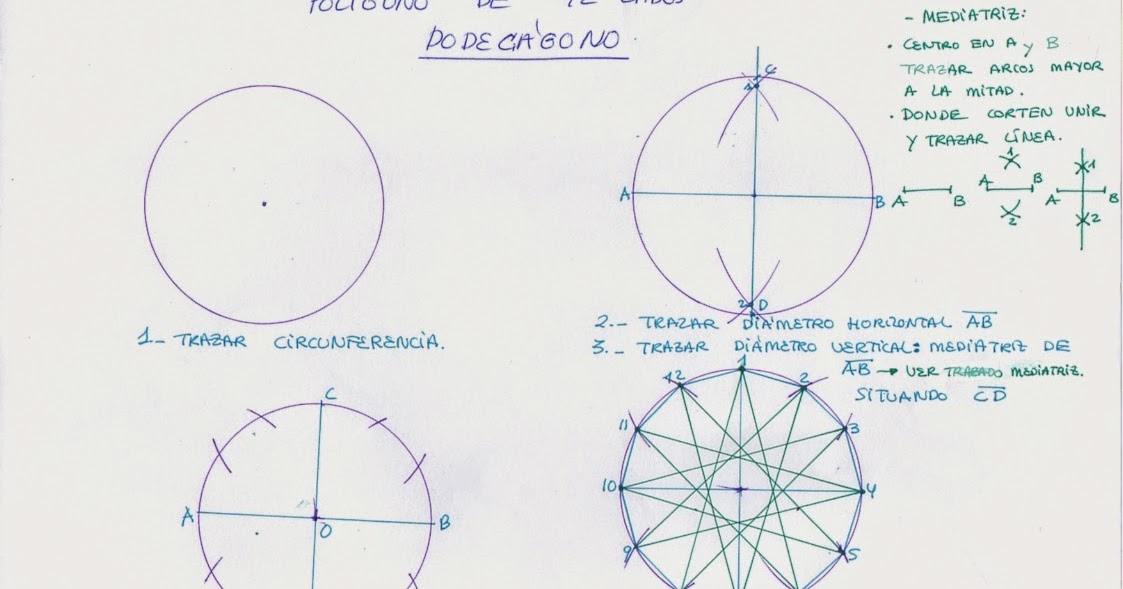 POLÍGONO DE 12 LADOS
DODECÁGONO.
- MEDIATRIZ:
• CENTRO EN A y B
TRAZAR ARCOS MAYOR
A LA MITAD.
• DONDE CORTEN UNIR
Y TRAZAR LÍNEA.
A B
A B 1 2
A B 1 2
C
1
A B
2 D
1.- TRAZAR CIRCUNFERENCIA.
2.- TRAZAR DIÁMETRO HORIZONTAL AB
3.- TRAZAR DIÁMETRO VERTICAL: MEDIATRIZ DE
AB → VER TRAZADO MEDIATRIZ.
SITUANDO CD
C
A B
O
1
12 2
11 3
10 4
9 5